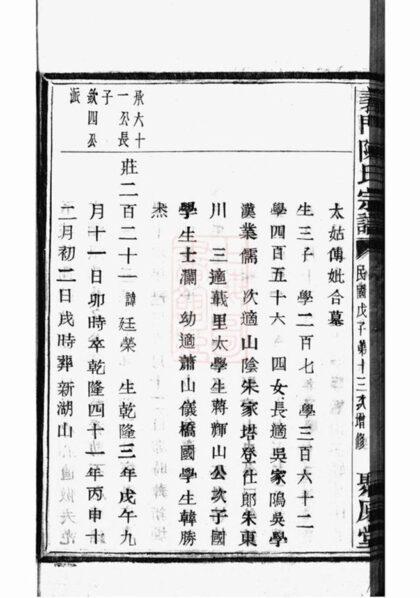 義門陳氏宗譜
民國戊子第十三次增修
聚原堂
太姑傅妣合墓
生三子 學二百七 學三百六十二
學四百五十六 四女長適吳家隖吳學
漢業儒 次適山陰朱家塔登仕郎朱東
川 三適戴里太學生蔣輝山公次子國
學生士瀾 幼適蕭山儀橋國學生韓勝
杰
承六十
一公長
子
欽四公
派
莊二百二十一諱廷榮 生乾隆三年戊午九
月十一日卯時卒乾隆四十一年丙申十
二月初二日戌時葬新湖山